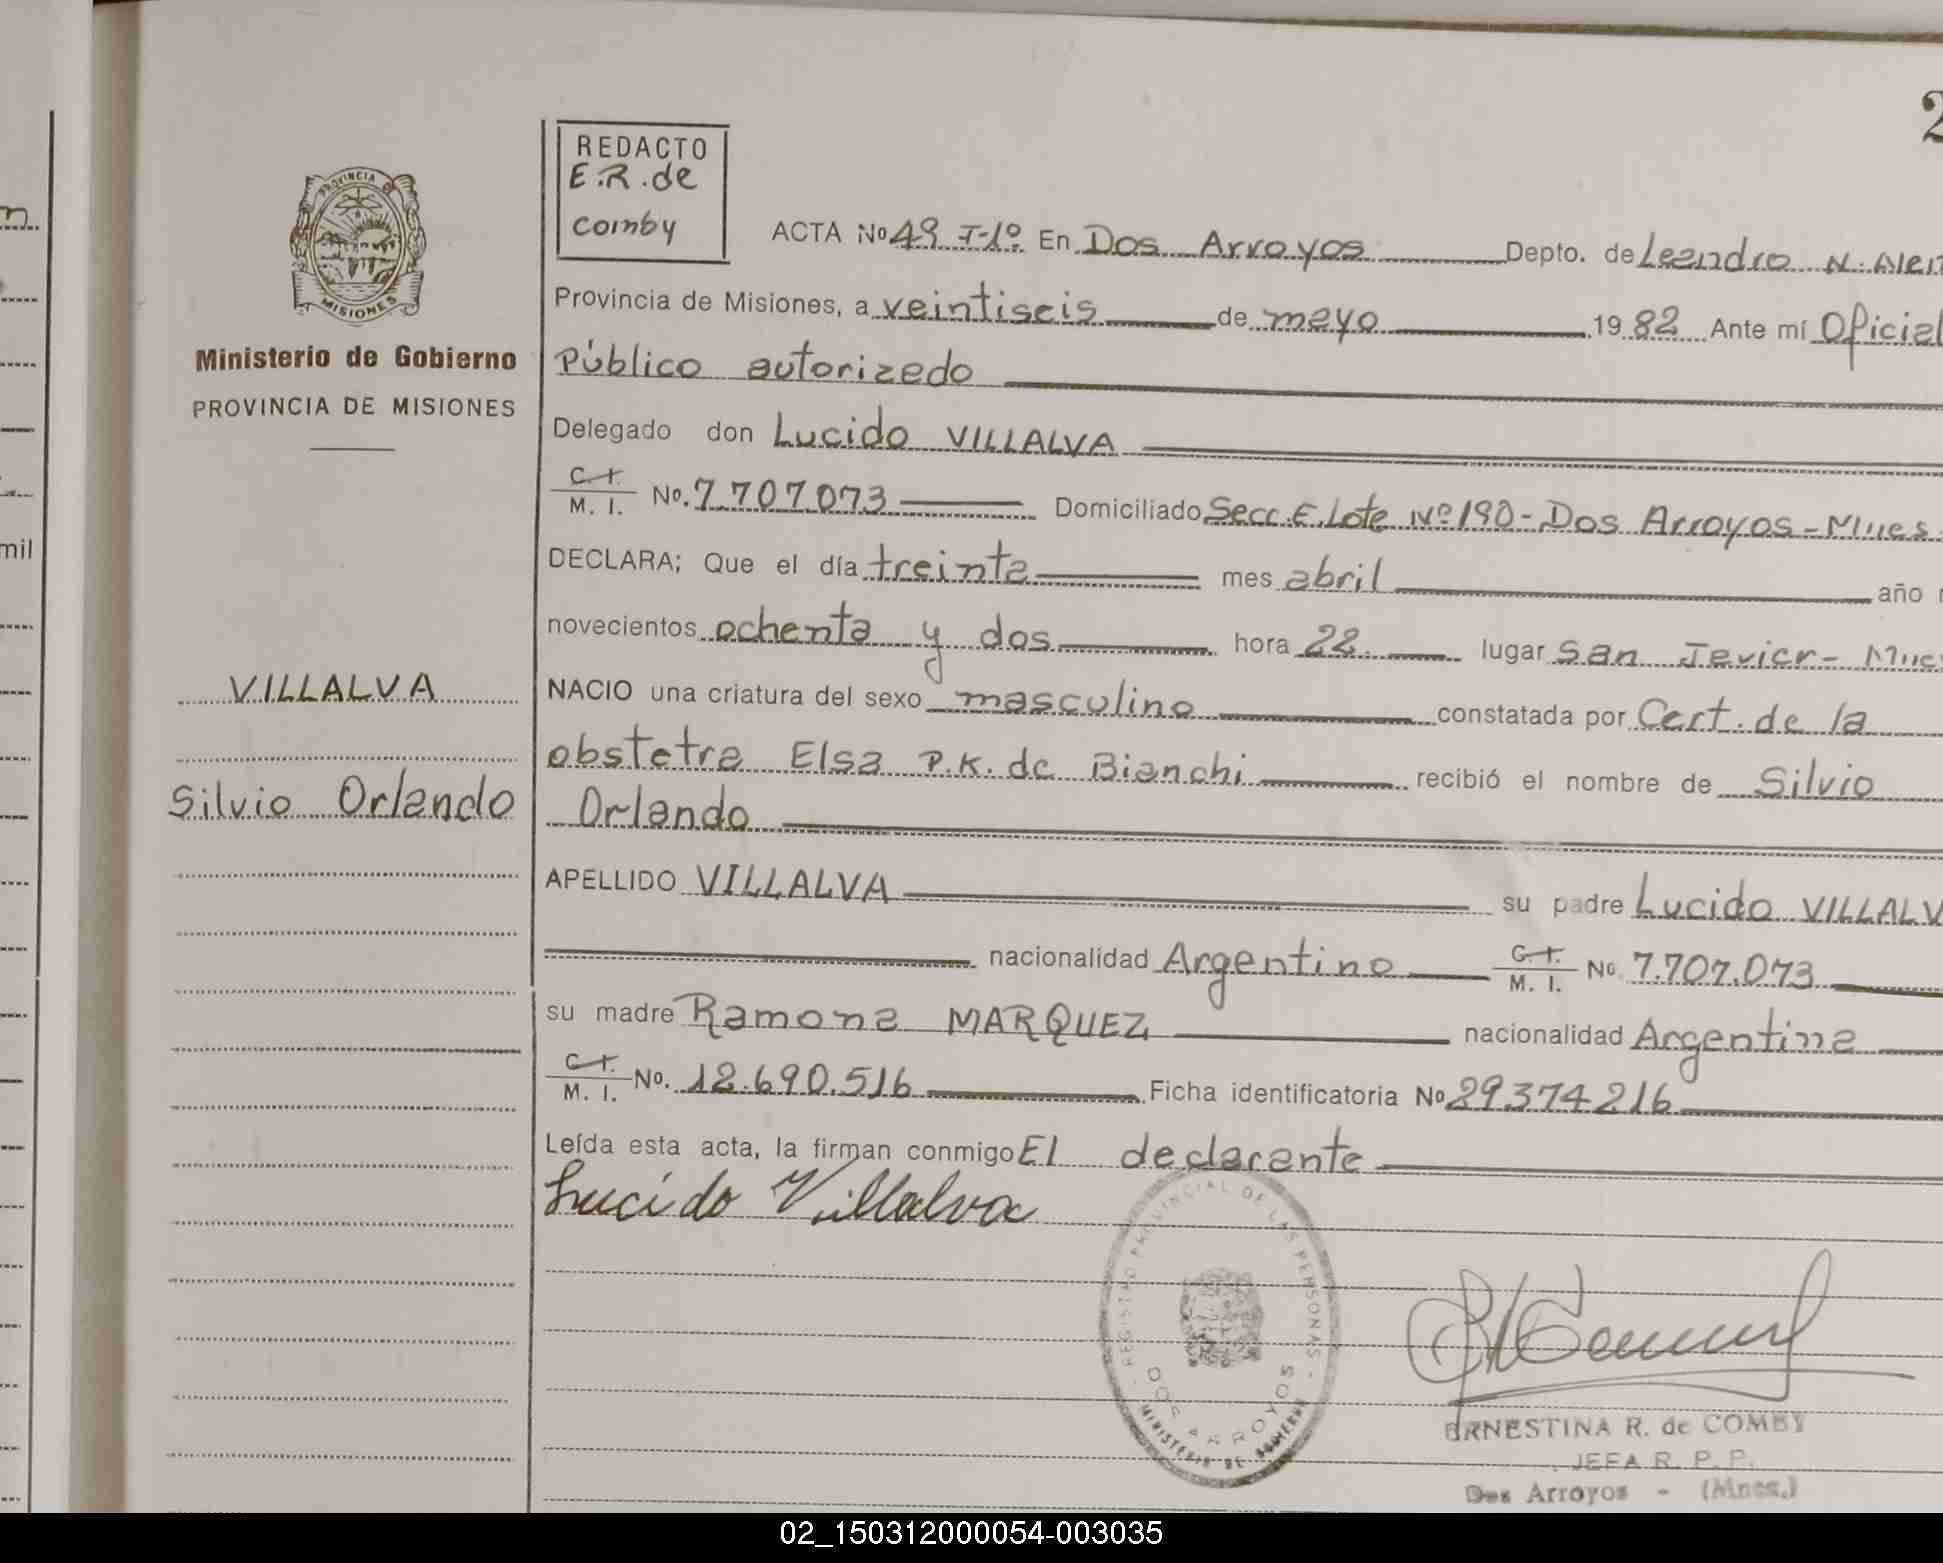 2
REDACTO
E.R. de
Comby
PROVINCIA DE
MISIONES
Ministerio de Gobierno
PROVINCIA DE MISIONES
VILLALVA
Silvio Orlando
ACTA Nº 49 T-1º En Dos Arroyos Depto. de Leandro N. Alem
Provincia de Misiones, a veintiseis de mayo 19 82 Ante mí Oficial
Público autorizado
Delegado don Lucido VILLALVA
C. I. M. I. No. 7.707.073 Domiciliado Secc. E. Lote Nº 190 - Dos Arroyos - Mnes -
DECLARA; Que el día treinta mes abril año
novecientos ochenta y dos hora 22. lugar San Javier - Mnes
NACIO una criatura del sexo masculino constatada por Cert. de la
obstetra Elsa P.K. de Bianchi recibió el nombre de Silvio
Orlando
APELLIDO VILLALVA su padre Lucido VILLALV
nacionalidad Argentino C. I. M. I. No 7.707.073
su madre Ramona MARQUEZ nacionalidad Argentina
C. I. M. I. No. 12.690.516 Ficha identificatoria No 29374216
Leída esta acta, la firman conmigo El declarante
Lucido Villalva
REGISTRO PROVINCIAL DE LAS PERSONAS
DOS ARROYOS
MINISTERIO DE GOBIERNO
ERNESTINA R. de COMBY
JEFA R. P. P.
Dos Arroyos - (Mnes.)
mil
02_150312000054-003035